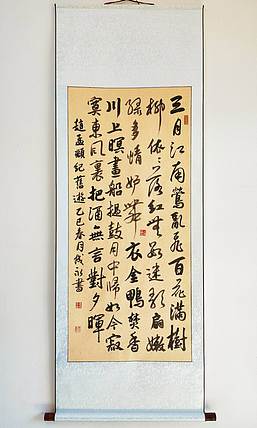 三月江南鶯亂飛百花滿樹
柳依〻落紅無數迷歌扇嫩
綠多情妒舞衣金鴨焚香
川上暝畫船撾鼓月中歸如今寂
寞東風裏把酒無言對夕暉
趙孟頫紀舊遊乙巳春月書